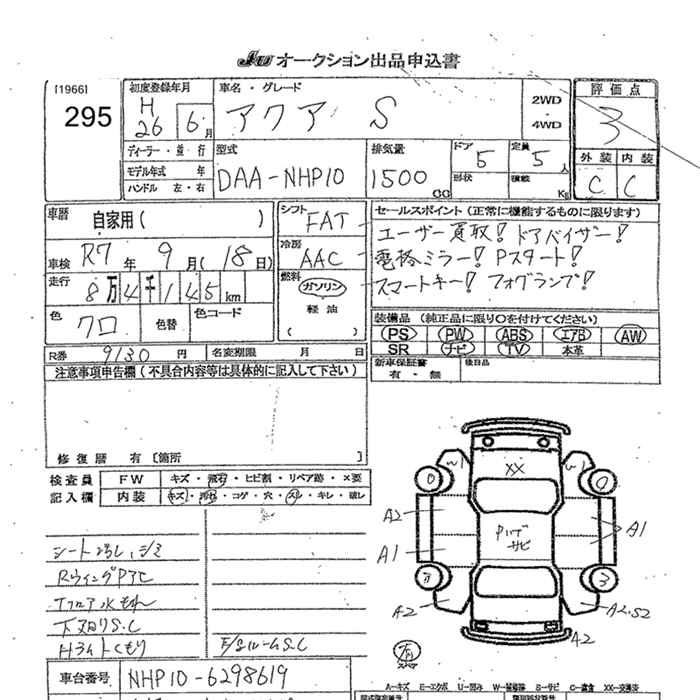 JU オークション出品申込書
[1966]
295
初度登録年月
H 26 年 6 月
車名・グレード
アクア S
2WD
4WD
評価点
3
外装 内装
C C
ディーラー・並行
モデル年式 年
ハンドル 左・右
型式
DAA-NHP10
排気量
1500 CC
ドア 5
定員 5 人
形状
積載 Kg
車歴 自家用( )
車検 R7 年 9 月 (18日)
走行 8万4千145 km
色 クロ
色替
色コード
シフト FAT
冷房 AAC
燃料 ガソリン
軽油
( )
セールスポイント(正常に機能するものに限ります)
ユーザー買取! ドアバイザー!
電格ミラー! Pスタート!
スマートキー! フォグランプ!
装備品 (純正品に限り○を付けてください)
PS PW ABS エアB AW
SR ナビ TV 本革
R券 9130 円
名変期限 月 日
新車保証書 有・無
後日品
注意事項申告欄(不具合内容等は具体的に記入して下さい)
修復歴 有〔箇所 〕
検査員記入欄
FW キズ・飛石・ヒビ割・リペア跡・×要
内装 キズ・汚れ・コゲ・穴・スレ・キレ・破レ
シートヨゴレ、シミ
Tフロア水もれ
下廻りS.C
Hライトくもり
E/gルームS.C
XX
A2
A1
A1
A2
A2
車台番号 NHP10-6298619
A=キズ E=エクボ U=凹み W=補修跡 S=サビ C=腐食 XX=交換済